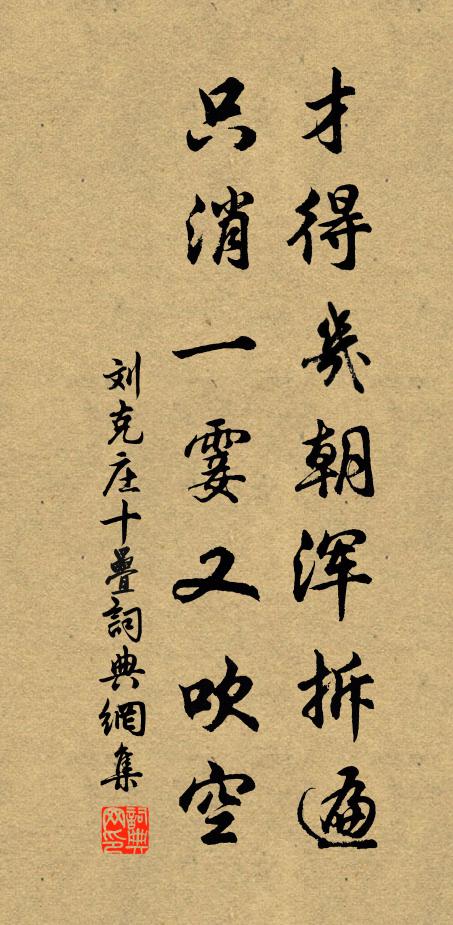 才得幾朝浑拆遍
只消一霎又吹空
刘克庄十疊詞典網集
詞典网印